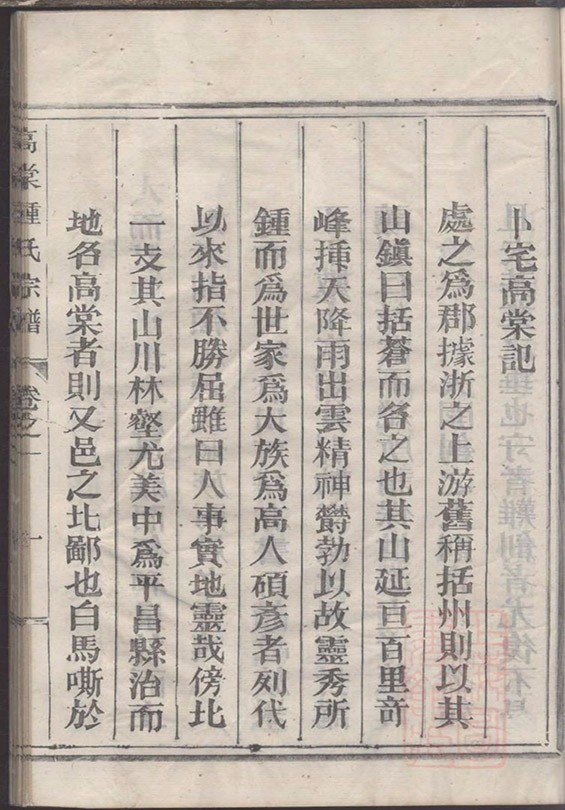 卜宅高棠記
處之為郡據浙之上游舊稱括州則以其
山鎮曰括蒼而各之也其山延亘百里竒
峰揷天降雨出雲精神欝勃以故靈秀所
鍾而為世家為大族為高人碩彥者列代
以來指不勝屈雖曰人事實地靈哉傍北
一支其山川林壑尤美中為平昌縣治而
地名高棠者則又邑之北鄙也白馬嘶於
高棠鍾氏宗譜 卷之一 一